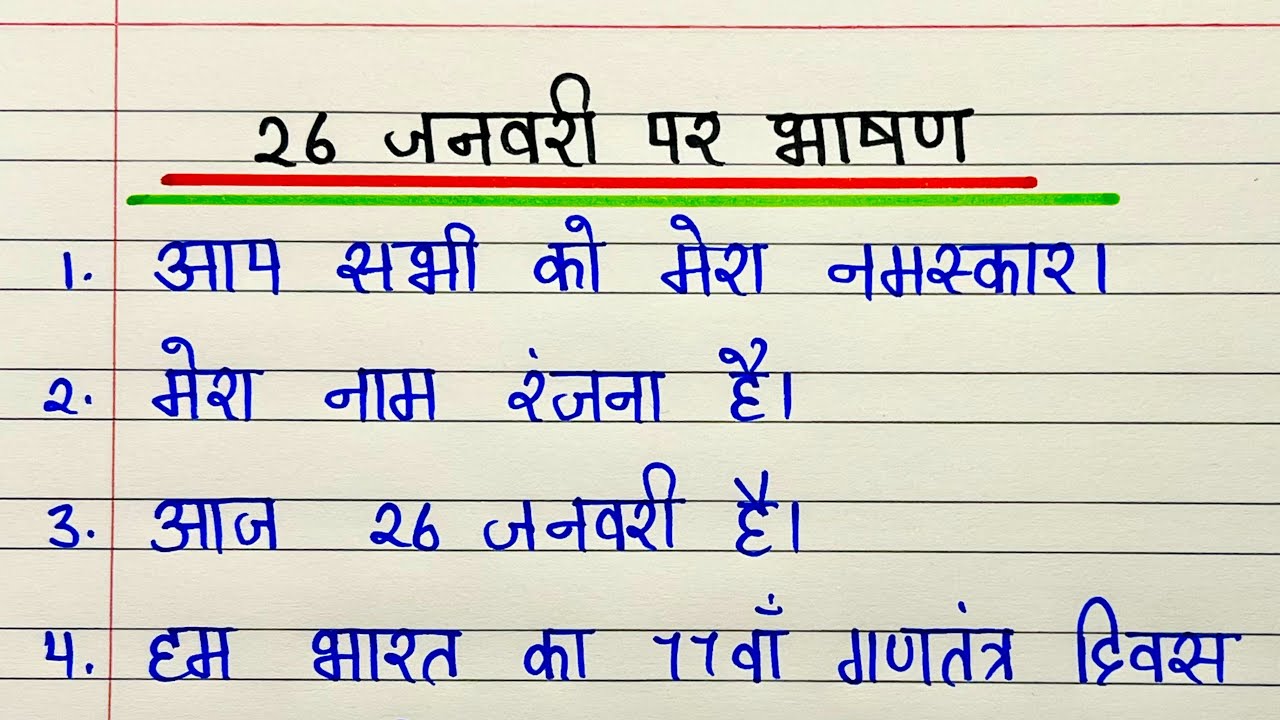 26 जनवरी पर भाषण
1. आप सभी को मेरा नमस्कार।
2. मेरा नाम रंजना है।
3. आज 26 जनवरी है।
4. हम भारत का 77वाँ गणतंत्र दिवस